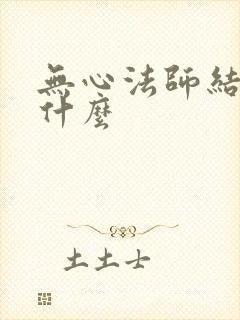 無心法師結
什麼
土土士